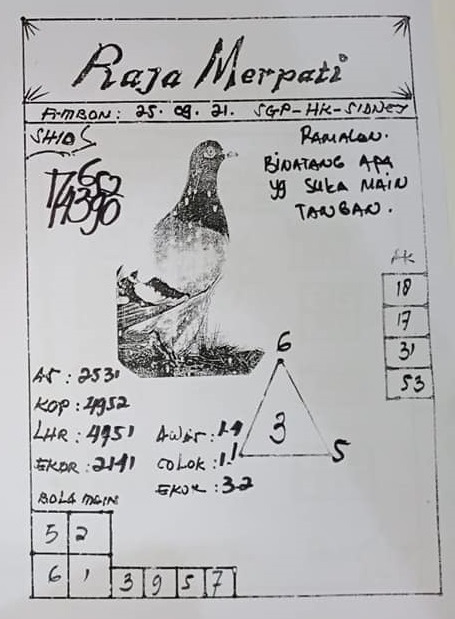 Raja Merpati
AMBON: 25. 09. 21. SGP-HK-SIDNEY
SHIO
RAMALAN.
BINATANG APA
yg SUKA MAIN
TANGAN.
AK
18
17
31
53
6
3
5
AS : 2531
KOP : 4952
LHR : 4951
EKOR : 2141
AWAR : 1.9
COLOK : 1.1
EKOR : 32
BOLA MAIN
5 2
6 1 3 9 5 7